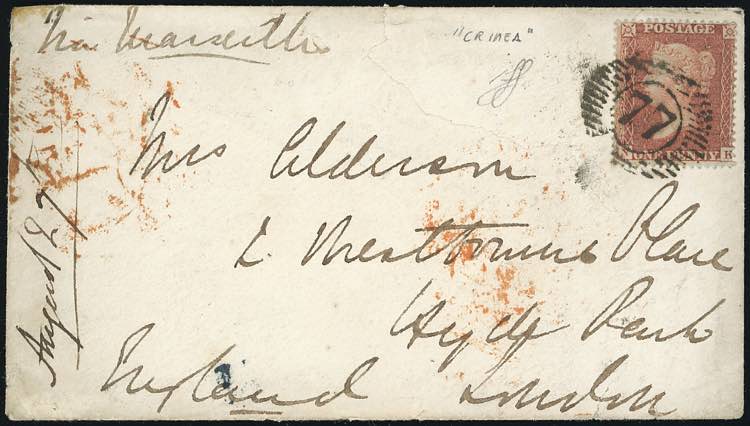 Via Marseilles
"CRIMEA"
POSTAGE
77
ONE PENNY
R
Mrs Alderson
2 Westbourne Place
Hyde Park
London
England
August 27